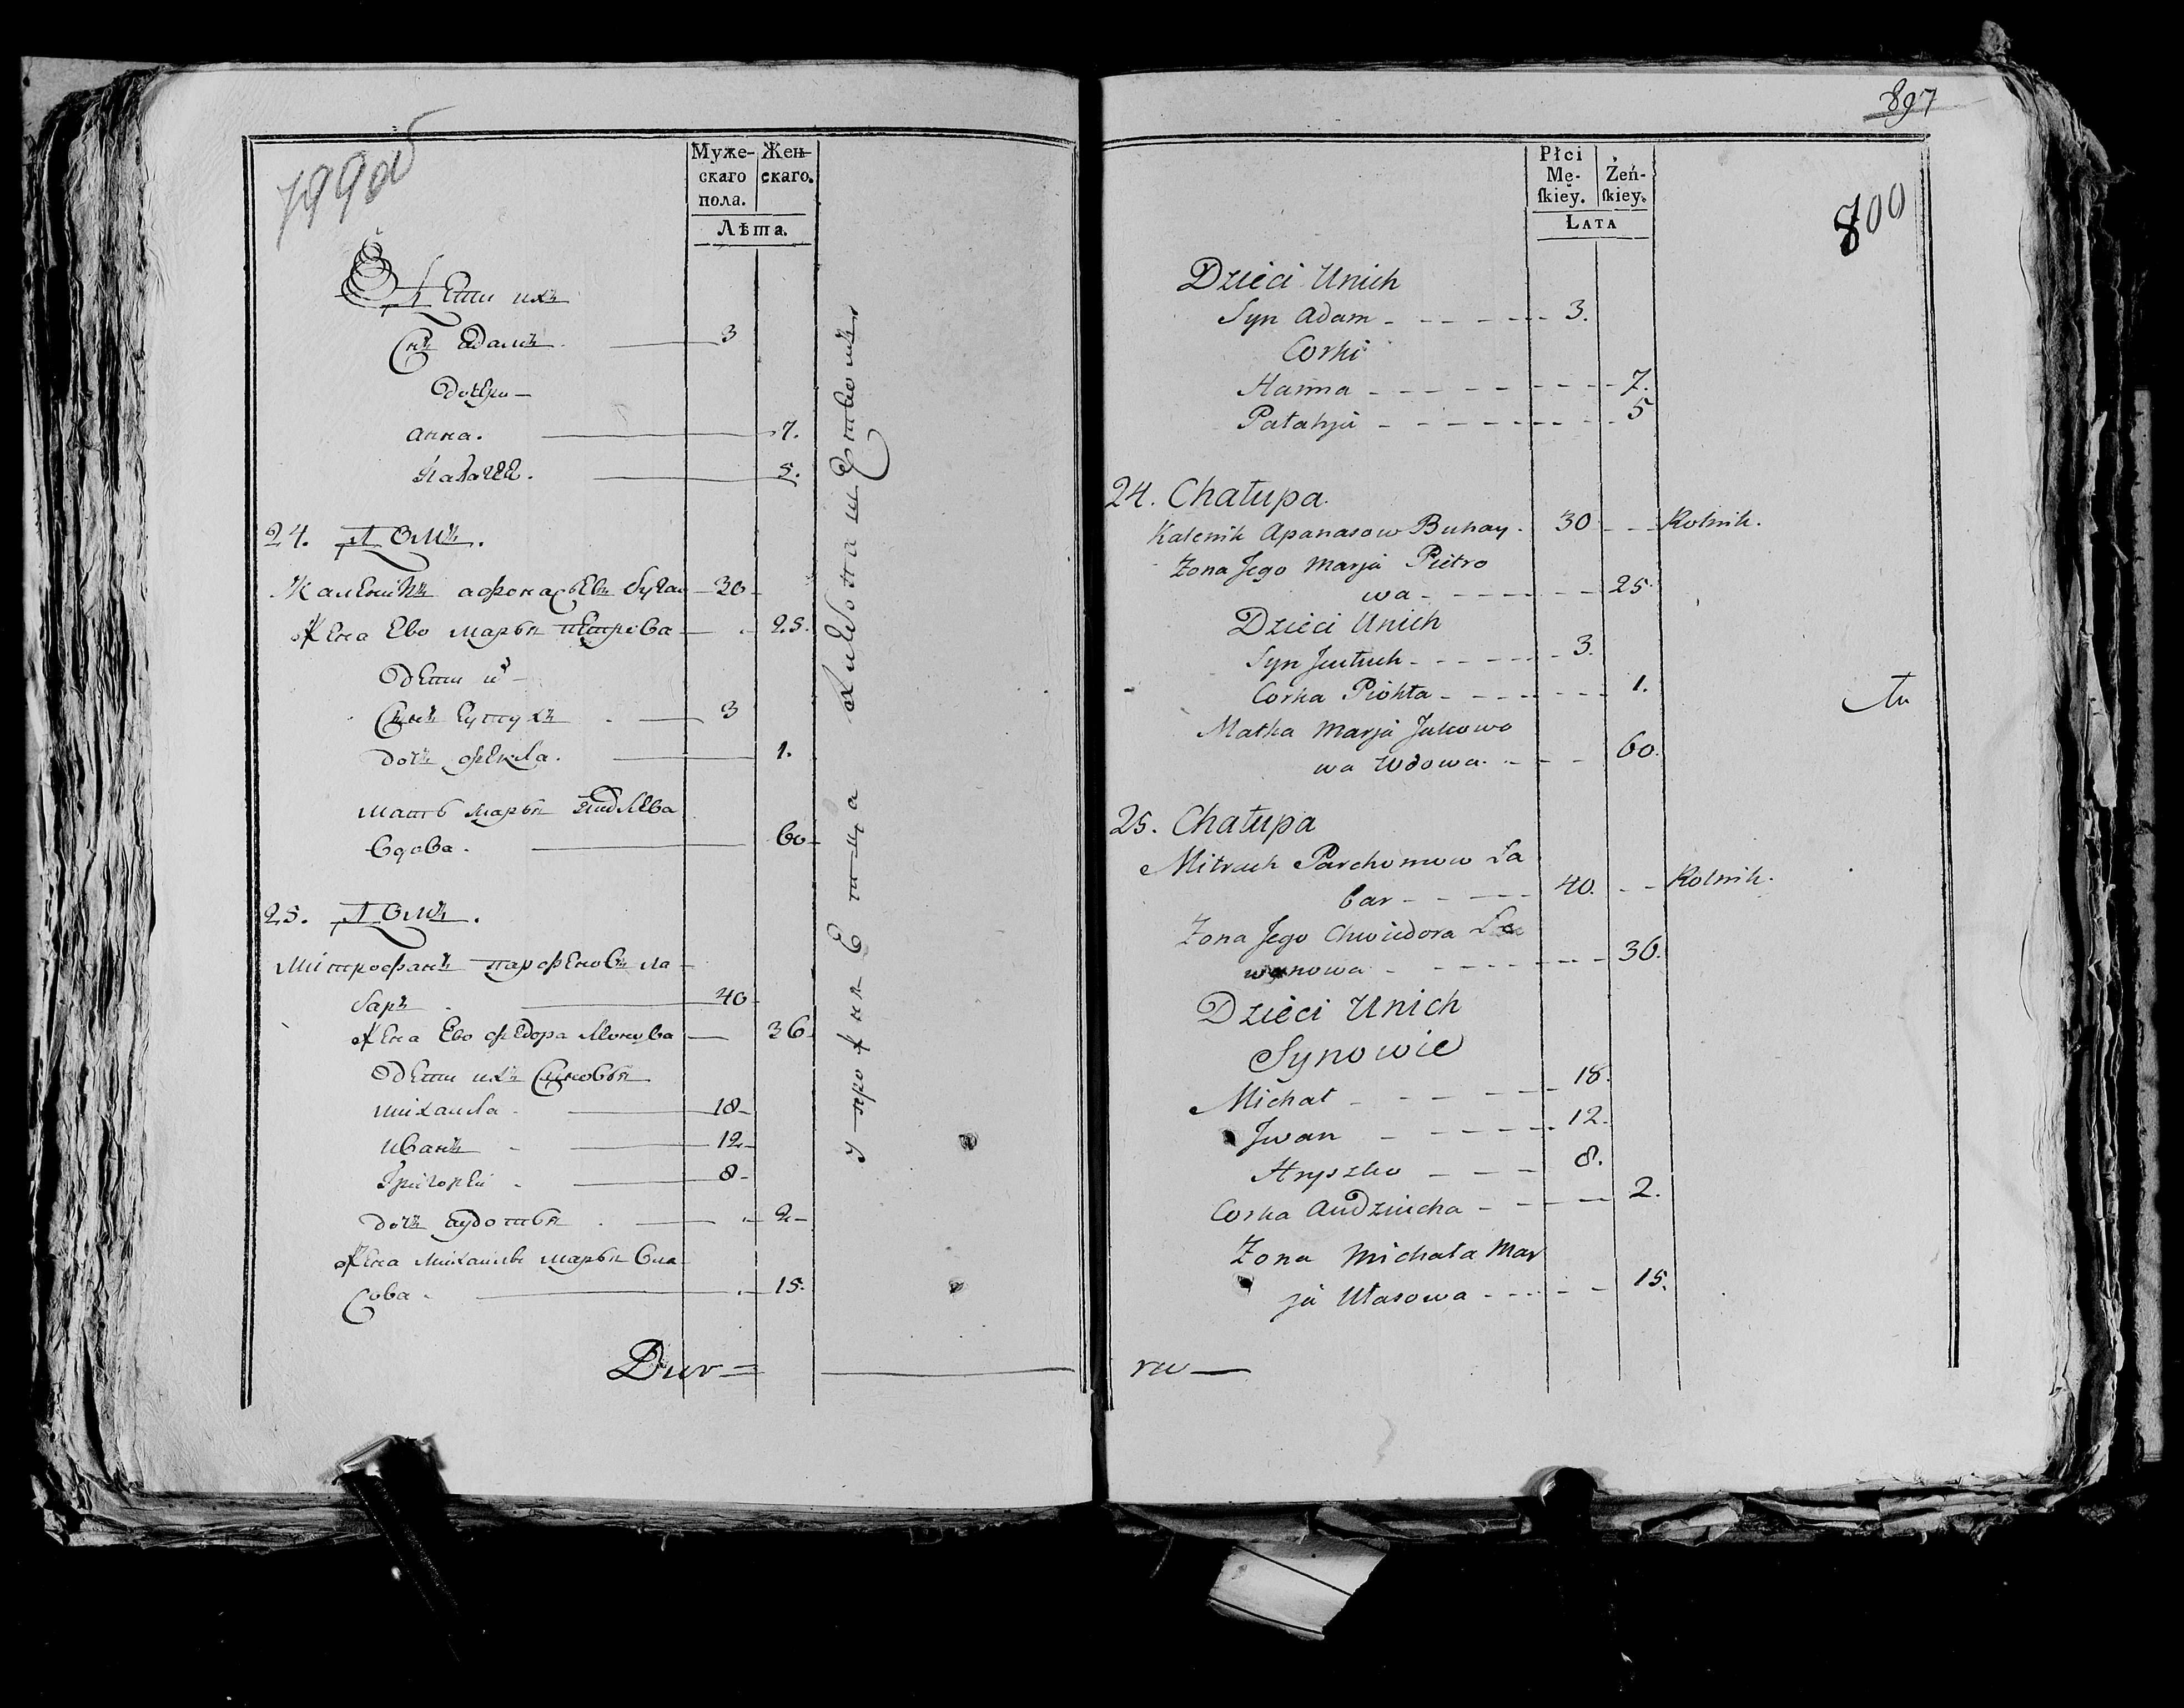 799об
Муже-
скаго
пола.
Жен-
скаго.
Лѣта.
Дети ихъ
Снъ адамъ. 3
Дочери
анна. 7.
палагея. 5.
24. Домъ.
Каленикъ афонасьевъ бугай 30
Жена Ево марья петрова 25.
Дети их
Сынъ Еутухъ 3
дочь фекла. 1.
мать марья
вдова. 60
25. Домъ.
Митрофанъ парфеновъ ла
барь 40
Жена Ево федора леонова 36
Дети ихъ Сыновья
михаила 18
иванъ 12
Григорей 8
дочь аудотья 2
Жена михаилы марья вла
сова. 15.
упрожняетца хлебопашествомъ
Dwo
897
800
Płci
Mę-
ſkiey.
Żeń-
ſkiey.
Lata
Dzieci Unich
Syn Adam 3.
Corki
Hanna 7.
Patahja 5
24. Chałupa.
Kalenik Apanasow Buhay. 30 Rolnik.
Zona Jego Marja Pietro
wa 25
Dzieci Unich
Syn Jeutuch 3.
Corka Piokła 1.
tu
Matka Marja Jakowo
wa Wdowa. 60.
25. Chałupa
Mitrach Parchomow Ła
bar 40. Rolnik.
Zona Jego Chwiedora
36.
Dzieci Unich
Synowie
Michał 18.
Jwan 12.
Hryszko 8.
Corka Audziucha 2.
Zona Michała Mar
ja Ułasowa 15.
ru